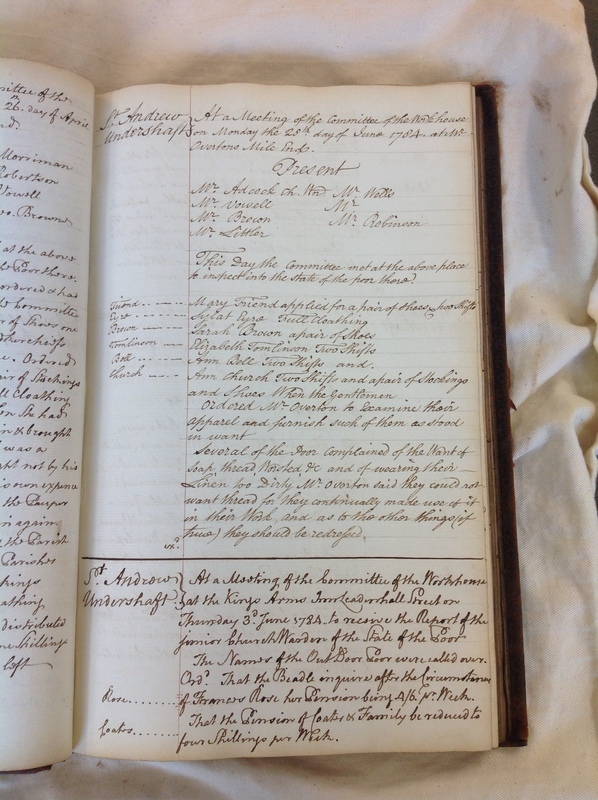 ittee of the
26th day of April
Morriman
Robertson
Vowell
Browne
at the above
the Poor there.
ordered & has
the Committee
of Shoes one
Ordered
air of Stockings
ll Cloathing
& brought
was a
ght not by his
own expence
the Pauper
again
the Parish
Parishes
athing
distributed
ne Shilling
left
St. Andrew
Undershaft
At a Meeting of the Committee of the Workhouse
on Monday the 28th day of June 1784 at Mr
Overtons Mile End.
Present
Mr. Adcock Ch. Wdn Mr. Wells
Mr. Vowell Mr.
Mr. Brown Mr. Robinson
Mr. Littler
This Day the Committee met at the above place
to inspect into the State of the poor there.
Friend Mary Friend applied for a pair of Shoes, two Shifts
Pyre Sylat Pyre Full Cloathing
Brown Sarah Brown a pair of Shoes
Tomlinson Elizabeth Tomlinson Two Shifts
Bell Ann Bell Two Shifts and.
Church Ann Church Two Shifts and a pair of Stockings
and Shoes When the Gentlemen
Ordered Mr. Overton to Examine their
apparel and furnish such of them as stood
in want
Several of the Poor Complained of the Want of
Soap, thread Worsted, &c and of wearing their
Linen too Dirty Mr. Overton said they could not
want thread for they continually made use of it
in their Work, and as to the other things (if
true) they should be redressed.
exd.
St. Andrew
Undershaft
At a Meeting of the Committee of the Workhouse
at the Kings Arms Inn Leadenhall Street on
Thursday 3d. June 1784. to receive the Report of the
junior Church Warden of the State of the Poor
The Names of the Out Door Poor were called over.
Ord. That the Beadle inquire after the Circumstances
Rose of Frances Rose her Pension being 4/6 pr. Week.
Coates That the Pension of Coates & Family be reduced to
four Shillings per Week.